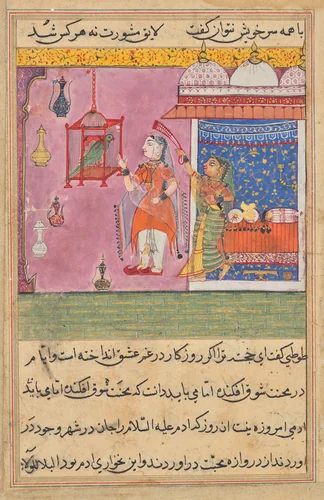 با همه سر خویش نتوان گفت لایق مشورت نه هر کس شد
طوطی گفت ای خجسته ترا اگر روزگار در غم عشق انداخته است و ایام
در محنت شوق افکنده اما می باید دانست که محنت شوق افکنده اما می باید
ادمی امروزه نیست ان روز که ادم علیه السلام را جان در شهر وجود در
اوردند از دروازه محبت در اوردند و این بخواری ادم بود البلا للولا